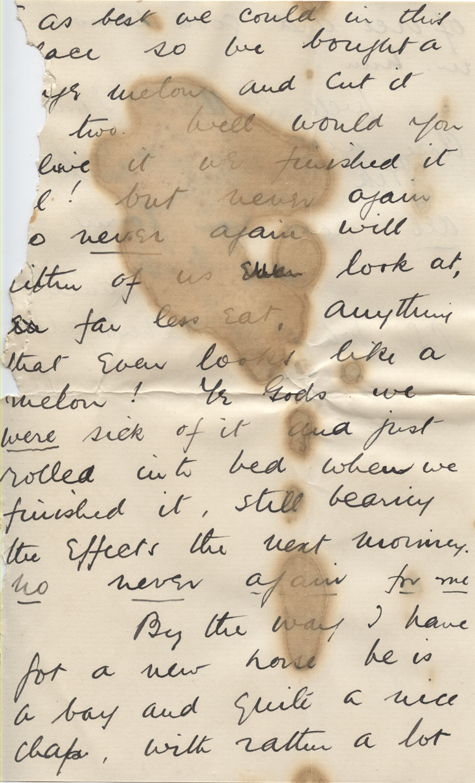 as best we could in this
so we bought a
melon and cut it
two. Well would you
it we finished it
! but never again
never again will
of us even look at,
far less eat, anything
that even looks like a
melon! Ye Gods we
were sick of it and just
rolled into bed when we
finished it, still bearing
the effects the next morning.
no never again for me
By the way I have
got a new horse he is
a bay and quite a nice
chap, with rather a lot